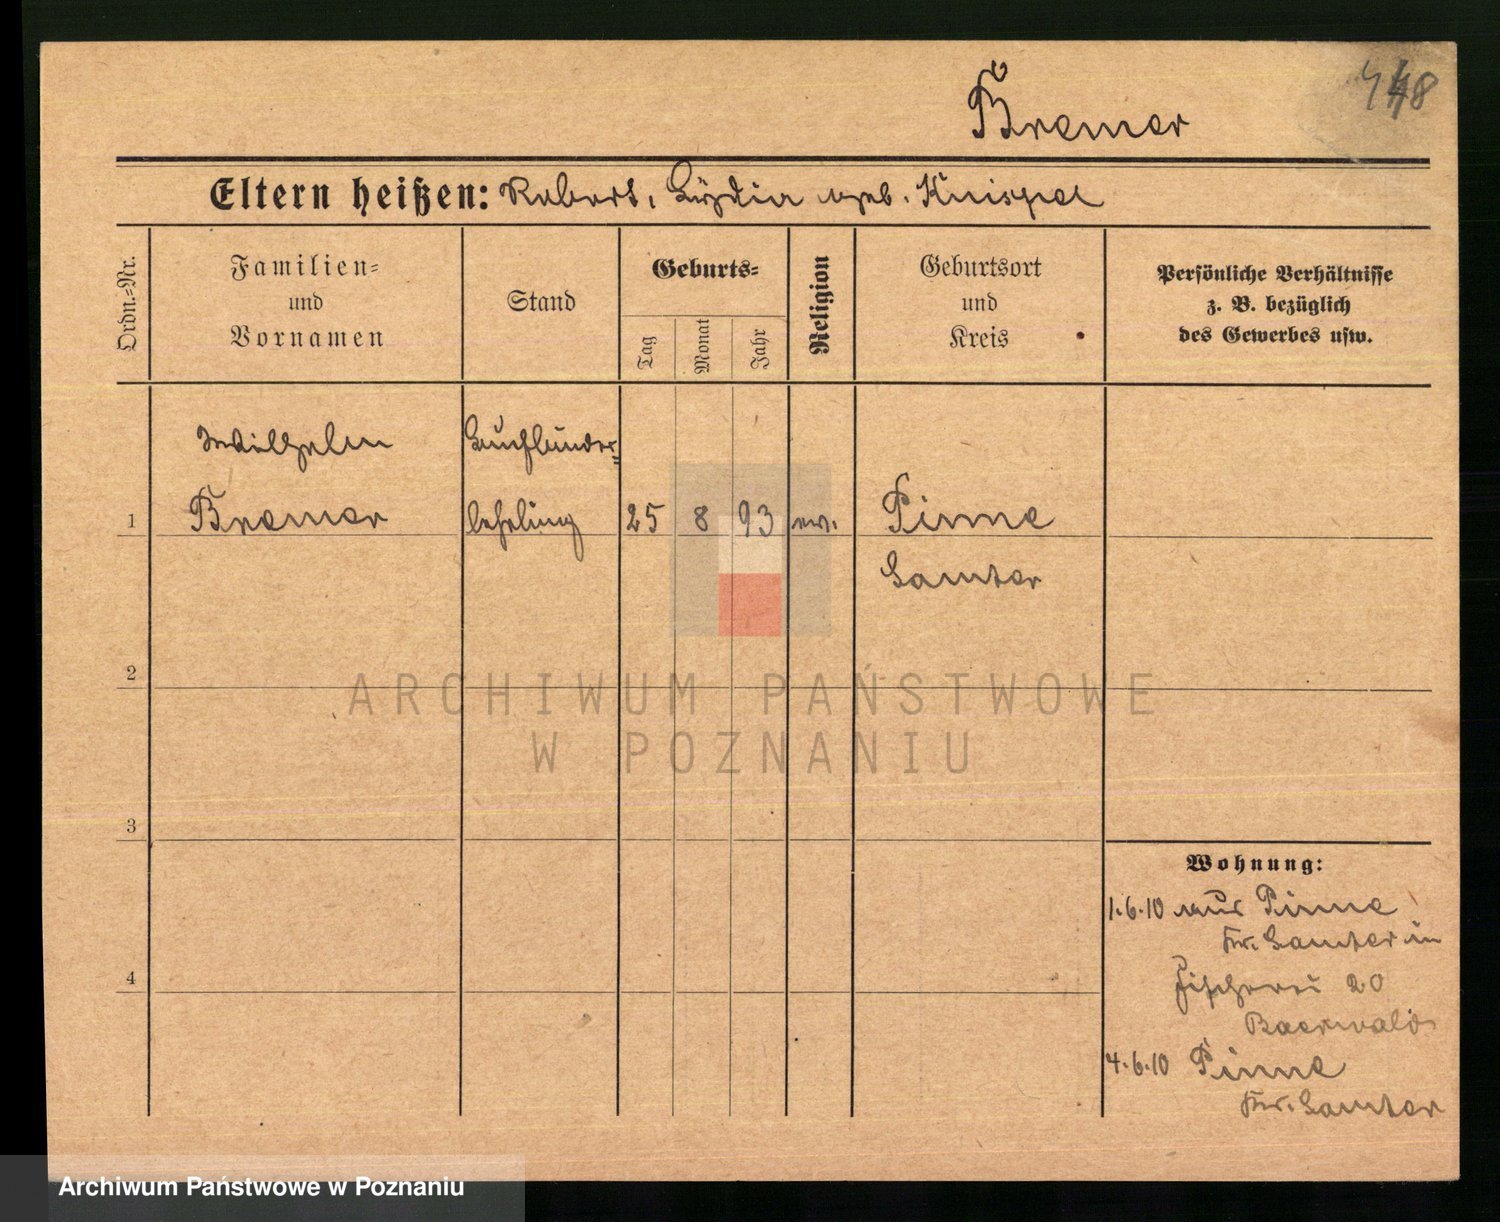 Bremer
448
Eltern heißen: Robert, Lydia geb. Knispel
Ordn.=Nr.
Familien=
und
Vornamen
Stand
Geburts=
Tag
Monat
Jahr
Religion
Geburtsort
und
Kreis
Persönliche Verhältnisse
z. B. bezüglich
des Gewerbes usw.
Wilhelm
Buchbinder=
1 Bremer lehrling 25 8 93 ev. Pinne
Samter
2
ARCHIWUM PAŃSTWOWE
W POZNANIU
3
Wohnung:
1.6.10 aus Pinne
Kr. Samter in
4
Fischerei 20
Baerwald
4.6.10 Pinne
Kr. Samter
Archiwum Państwowe w Poznaniu